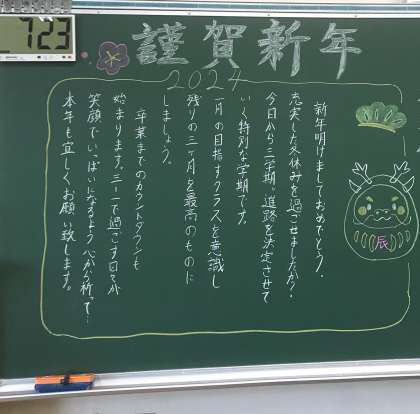 723
謹賀新年
2024
新年明けましておめでとう。
充実した冬休みを過ごせましたか?
今日から三学期。進路を決定させて
いく特別な学期です。
一月の目指すクラスを意識し
残りの三ヶ月を最高のものに
しましょう。
卒業までのカウントダウンも
始まります。三一一で過ごす日々が
笑顔でいっぱいになるよう心から祈って…
本年も宜しくお願い致します。
辰